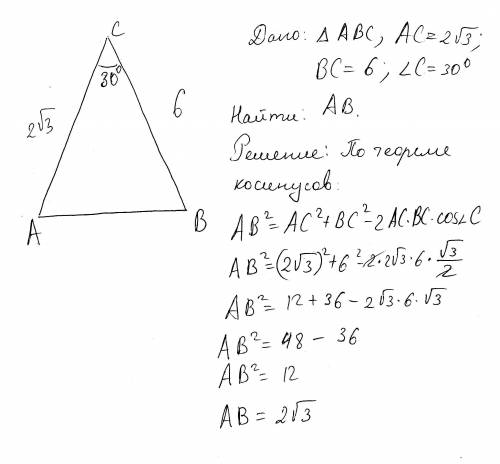 C
30°
2√3
6
A
B
Дано: △ ABC, AC = 2√3;
BC = 6; ∠C = 30°
Найти: AB.
Решение: По теореме
косинусов:
AB² = AC² + BC² - 2AC·BC·cos∠C
AB² = (2√3)² + 6² - 2·2√3·6·√3/2
AB² = 12 + 36 - 2√3·6·√3
AB² = 48 - 36
AB² = 12
AB = 2√3